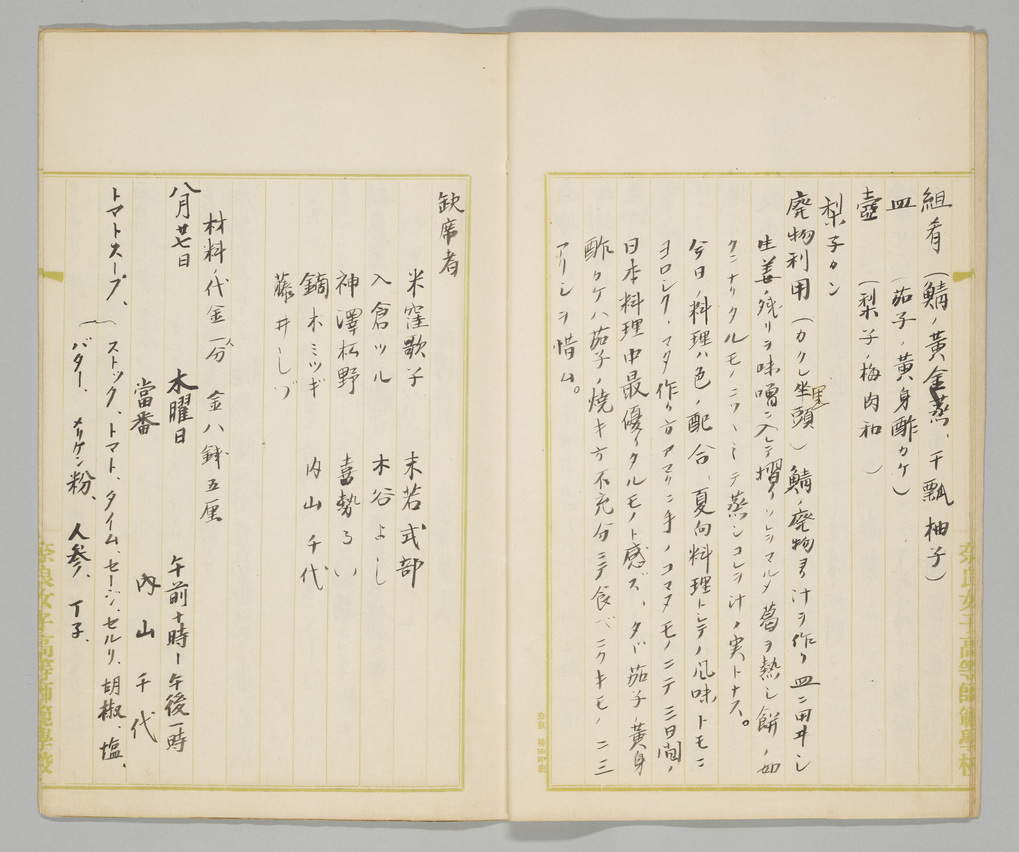 組肴 (鯖ノ黄金蒸、干瓢 柚子)
皿 (茄子ノ黄身酢カケ)
壺 (梨子ノ梅肉和)
梨子カン
廃物利用 (カクし坐頭) 鯖ノ廃物ヨリ汁ヲ作リ皿ニ用ヰシ
生姜ノ残リヲ味噌ニ入レテ摺リソレヲマルメ葛ヲ熱シ餅ノ如
クニナリタルモノニツヽミテ蒸シコレヲ汁ノ実トナス。
今日ノ料理ハ色ノ配合、夏向料理トシテノ風味トモニ
ヨロシク、マタ作リ方アマリニ手ノコマヌモノニテ三日間ノ
日本料理中最優レタルモノト感ズ、タヾ茄子ノ黄身
酢カケハ茄子ノ焼キ方不充分ニテ食ベニクキモノ二三
アリシヲ惜ム。
欽席者
米窪歌子 末若式部
入倉ツル 木谷よし
神澤柘野 喜勢ろい
鏑木ミツギ 内山千代
藤井しづ
材料ノ代金一人分 金八銭五厘
八月廿七日 木曜日 午前十時ー午後一時
當番 内山千代
トマトスープ、 (ストック、トマト、タイム、セージ、セルリ、胡椒、塩、
バター、メリケン粉、人参、丁子、
奈良女子高等師範學校
奈良女子高等師範學校